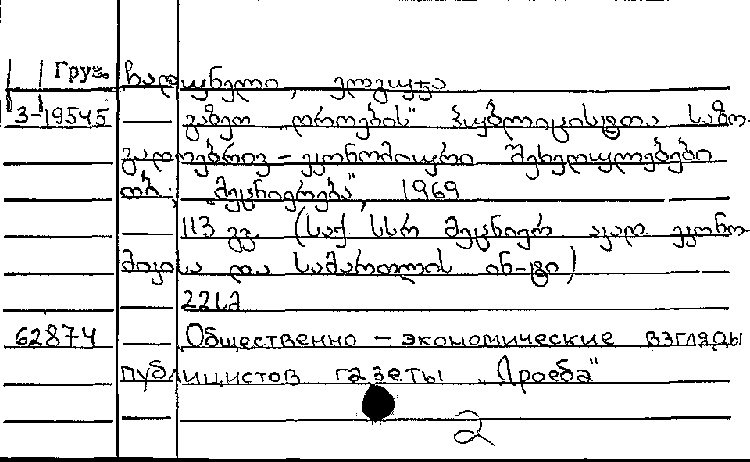 Груз. ელგუჯა
3-19545 გაზეთ „დროების“ პუბლიცისტთა საზო-
გადოებრივ-ეკონომიკური შეხედულებები
თბ., „მეცნიერება“, 1969
113 გვ. (საქ. სსრ მეცნიერ. აკად. ეკონო-
მიკისა და სამართლის ინ-ტი)
62874 Общественно-экономические взгляды
публицистов газеты „Дроеба“
2